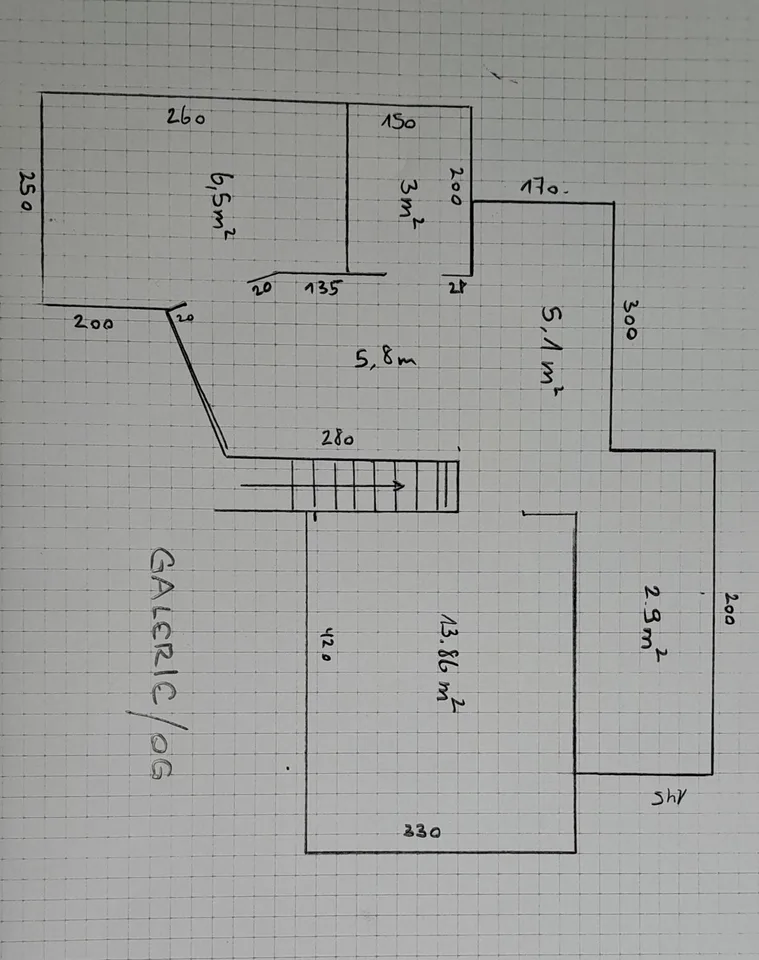 260
150
250
6,5m²
3m²
200
170.
20
135
200
20
5,8m
5,1m²
300
280
GALERIE/OG
420
13.86m²
2.9m²
200
145
330